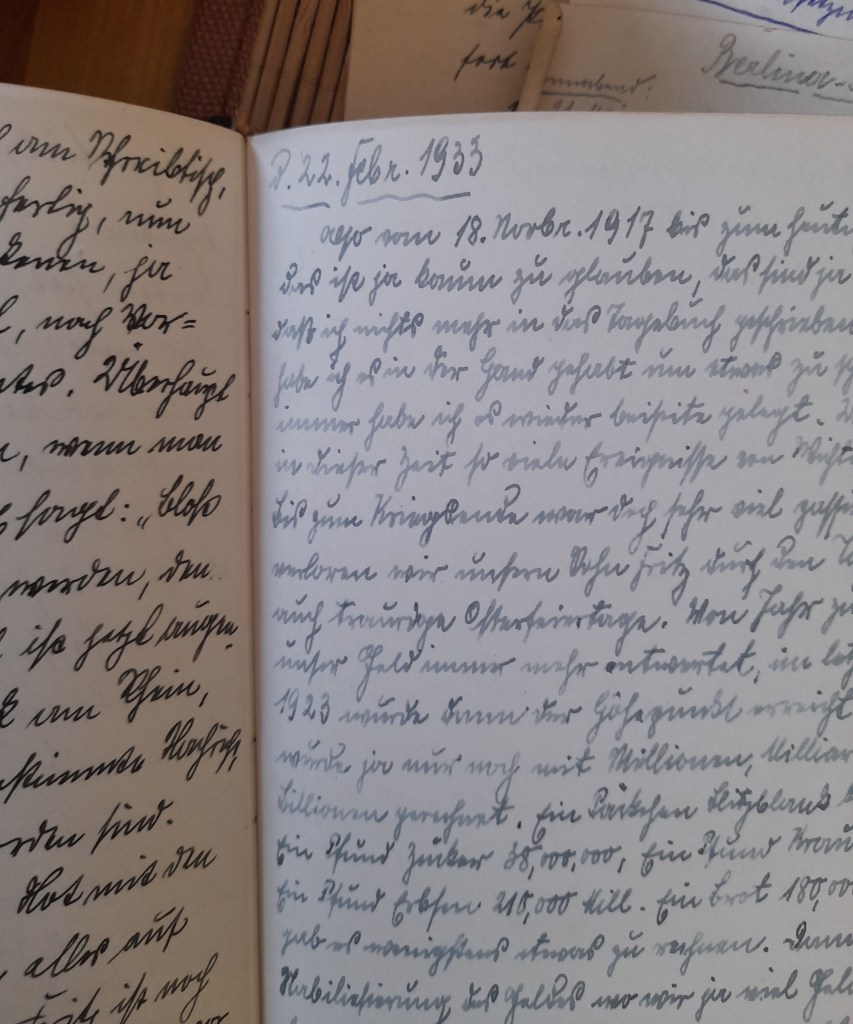 die
fort
Sonnabend:
Berlina-
am Schreibtisch,
fertig, nun
kennen, ja
, nach Vor=
. Überhaupt
, wenn man
sagt: „bloß
werden, den
ist jetzt augen
am Rhein,
bestimmte Nachricht,
worden sind.
Not mit den
, alles auf
Fritz ist noch
D. 22. Febr. 1933
also vom 18. Novbr. 1917 bis zum heuti
das ist ja kaum zu glauben, das sind ja
daß ich nichts mehr in das Tagebuch geschrieben
habe ich es in der Hand gehabt um etwas zu
immer habe ich es wieder beiseite gelegt.
in dieser Zeit so viele Ereignisse von Wicht
Bis zum Kriegsende war doch sehr viel passi
verloren wir unsern Sohn Fritz durch den
auch traurige Osterfeiertage. Von Jahr zu
unser Geld immer mehr entwertet, im
1923 wurde dann der Höhepunkt erreicht
wurde ja nur noch mit Millionen, Milliar
Billionen gerechnet. Ein Päckchen Blitzblank
Ein Pfund Zucker 38,000,000, Ein Pfund
Ein Pfund Erbsen 210,000 Mill. Ein Brot 180,00
gab es wenigstens etwas zu rechnen. Dann
Stabiliesierung des Geldes wo wir ja viel Geld